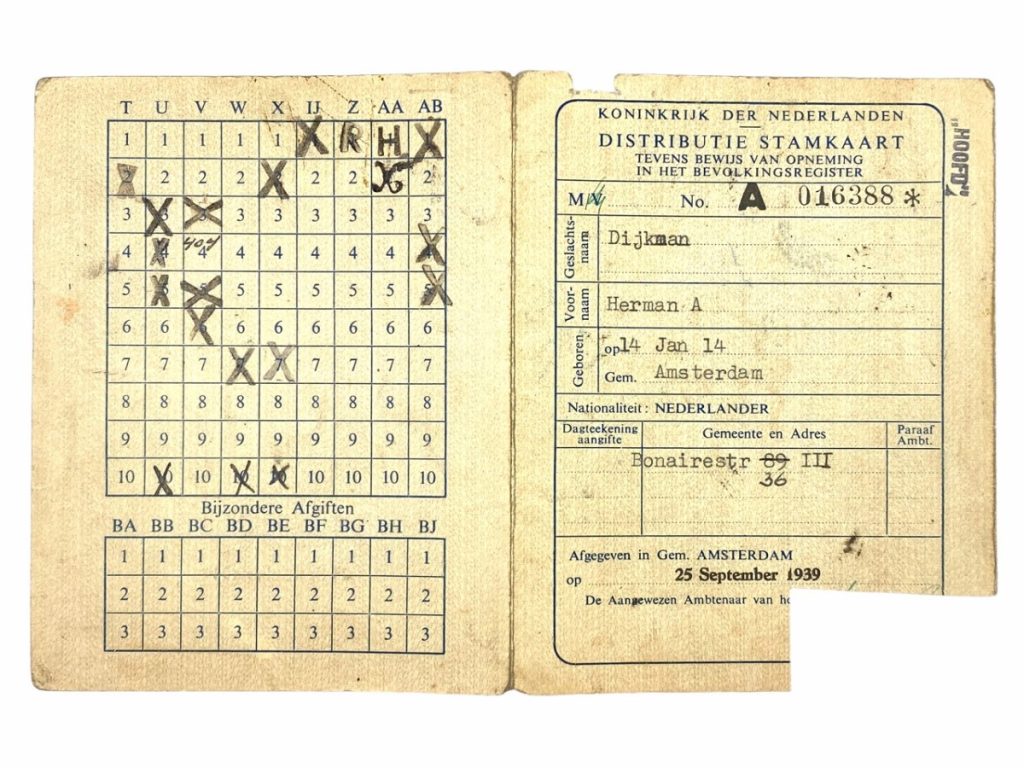 T U V W X IJ Z AA AB
1 1 1 1 1 X R H X
2 2 2 2 X 2 2 2
3 X X 3 3 3 3 3 3
4 4 4 4 4 4 4 4 4
5 5 5 5 5 5 5 5 5
6 6 6 6 6 6 6 6 6
7 7 7 7 7 7 7 7 7
8 8 8 8 8 8 8 8 8
9 9 9 9 9 9 9 9 9
10 10 10 10 10 10 10 10 10
Bijzondere Afgiften
BA BB BC BD BE BF BG BH BJ
1 1 1 1 1 1 1 1 1
2 2 2 2 2 2 2 2 2
3 3 3 3 3 3 3 3 3
KONINKRIJK DER NEDERLANDEN
DISTRIBUTIE STAMKAART
TEVENS BEWIJS VAN OPNEMING
IN HET BEVOLKINGSREGISTER
M No. A 016388 *
HOOFD
Geslachtsnaam Dijkman
Voornaam Herman A
Geboren op 14 Jan 14
Gem. Amsterdam
Nationaliteit: NEDERLANDER
Dagteekening aangifte Gemeente en Adres Paraaf Ambt.
Bonairestr 89 III
36
Afgegeven in Gem. AMSTERDAM
op 25 September 1939
De Aangewezen Ambtenaar van